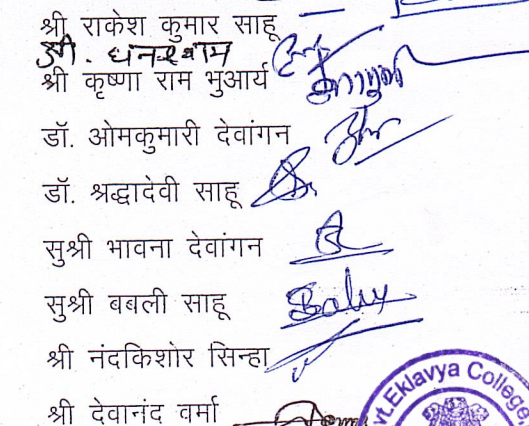 श्री राकेश कुमार साहू
श्री. घनश्याम
श्री कृष्णा राम भुआर्य
डॉ. ओमकुमारी देवांगन
डॉ. श्रद्धादेवी साहू
सुश्री भावना देवांगन
सुश्री बबली साहू Babli
श्री नंदकिशोर सिन्हा
श्री देवानंद वर्मा
vt.Eklavya College